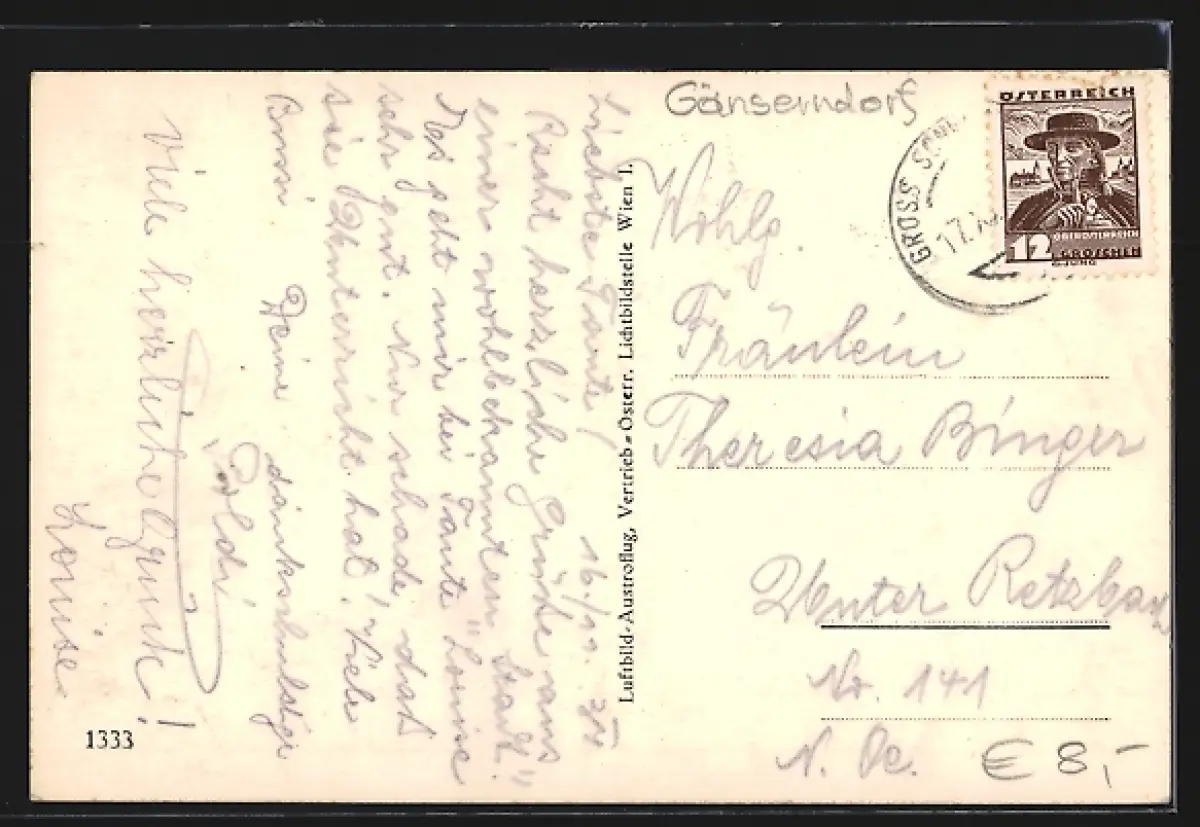 Gänserndorf
ÖSTERREICH
12 OBERÖSTERREICH
GROSCHEN
G. JUNG
GROSS
17.
Wohlg.
Fräulein
Theresia Binger
Unter Retzbach
Nr. 141
N. Oe.
€ 8,-
Luftbild-Austroflug, Vertrieb=Österr. Lichtbildstelle Wien I.
16./11.
Liebste Tante!
Recht herzliche Grüße aus
einer wohlbekannten "Stadt".
Es geht mir bei Tante Louise
sehr gut. Nur schade, dass
sie Unterricht hat! Viele
Bussi
Deine dankschuldige
Poldi
Viele herzliche Grüße!
Louise
1333